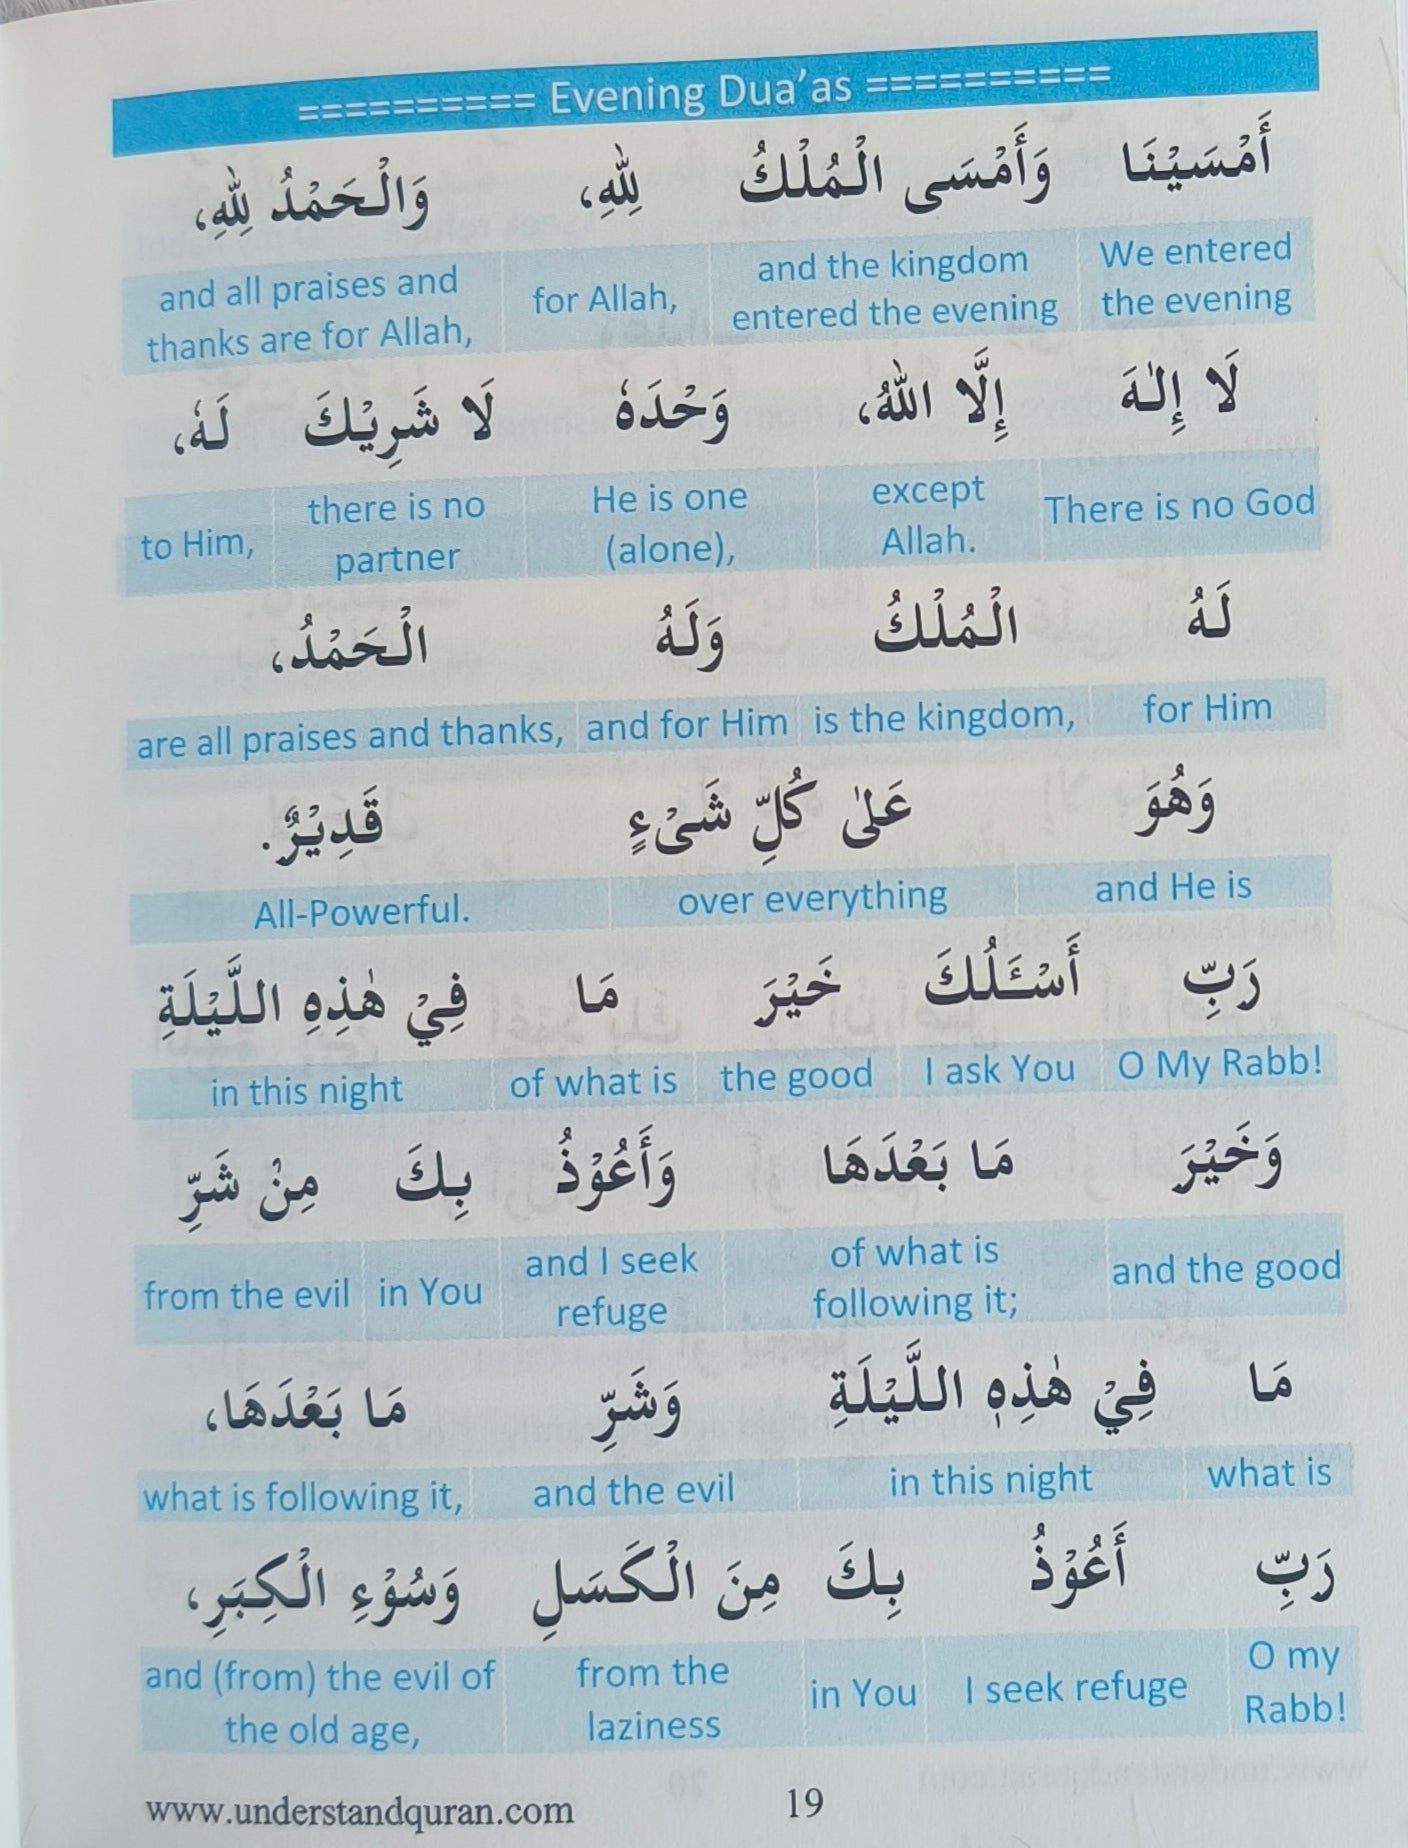 ========== Evening Dua’as ==========
أَمْسَيْنَا وَأَمْسَى الْمُلْكُ لِلّٰهِ، وَالْحَمْدُ لِلّٰهِ،
We entered the evening and the kingdom entered the evening for Allah, and all praises and thanks are for Allah,
لَا إِلٰهَ إِلَّا اللهُ، وَحْدَهٗ لَا شَرِيْكَ لَهٗ،
There is no God except Allah. He is one (alone), there is no partner to Him,
لَهُ الْمُلْكُ وَلَهُ الْحَمْدُ،
for Him is the kingdom, and for Him are all praises and thanks,
وَهُوَ عَلٰى كُلِّ شَىْءٍ قَدِيْرٌ.
and He is over everything All-Powerful.
رَبِّ أَسْـَٔلُكَ خَيْرَ مَا فِيْ هٰذِهِ اللَّيْلَةِ
O My Rabb! I ask You the good of what is in this night
وَخَيْرَ مَا بَعْدَهَا وَأَعُوْذُ بِكَ مِنْ شَرِّ
and the good of what is following it; and I seek refuge in You from the evil
مَا فِيْ هٰذِهِ اللَّيْلَةِ وَشَرِّ مَا بَعْدَهَا،
what is in this night and the evil what is following it,
رَبِّ أَعُوْذُ بِكَ مِنَ الْكَسَلِ وَسُوْءِ الْكِبَرِ،
O my Rabb! I seek refuge in You from the laziness and (from) the evil of the old age,
www.understandquran.com 19